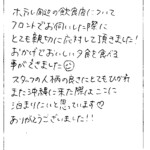 ホテル周辺の飲食店について
フロントでお伺いした際に
とても親切に応対して頂きました!
おかげでおいしい夕食を食べる
事ができました😊
スタッフの人柄の良さにとてもひかれ
また沖縄に来た際はここに
泊まりたいと思っています♡
ありがとうございました!!